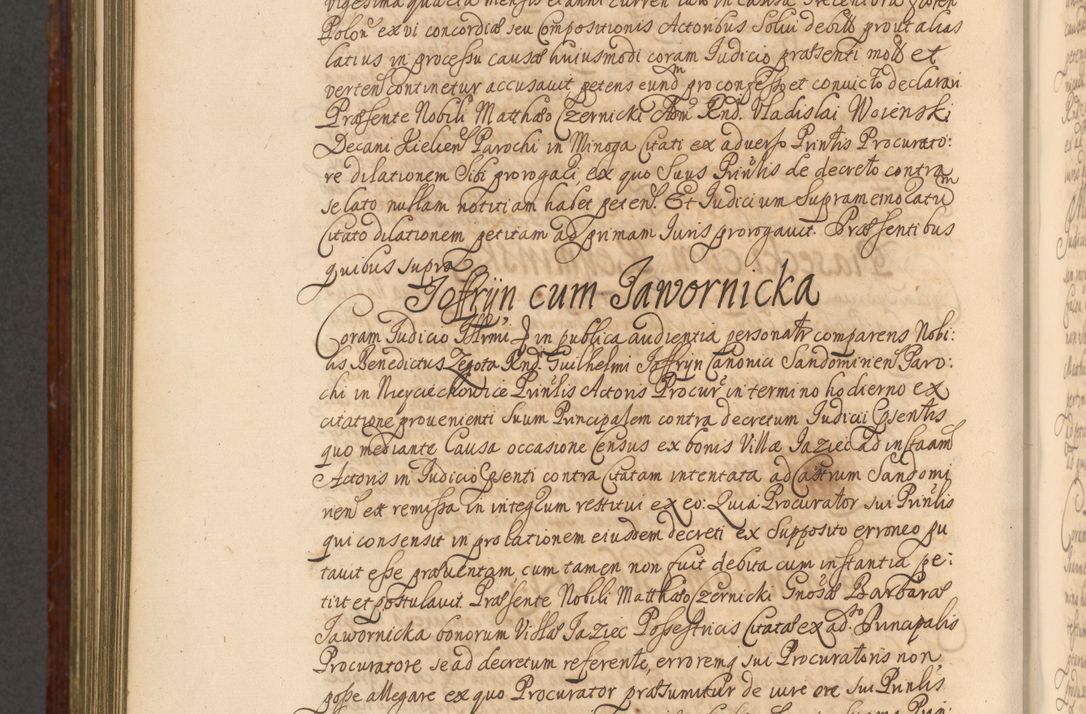 vigesima quarta mensis et anni curren
Polon ex vi concordiæ seu Compositionis Actoribus Solvi debitt prout alias
latius in processu causæ huiusmodi coram Iudicio præsenti mott et
verten continetur accusavit petens eundm pro confesso et convicto declarari
Præsente Nobili Matthæo Czernicki Adm Rnd Vladislai Woienski
Decani Kielien Parochi in Minoga Citati ex adverso Prinlis Procurato:
re dilationem Sibi prorogari ex quo Suus Prinlis de decreto contra
se lato nullam notitiam habet peten. Et Iudicium Supramemoratum
Citato dilationem petitam ad primam Iuris prorogavit. Præsentibus
quibus supra
Joffryn cum Jawornicka
Coram Iudicio in publica audientia personatr comparens Nobi:
lis Benedictus Zegota Rnd Guilhelmi Joffryn Canonici Sandomirien Paro:
chi in Prinlis Actoris Procur in termino hodierno ex
citatione provenienti Suum Principalem contra decretum Iudicii Gsentis
quo mediante Causa occasione Census ex bonis Villæ Jaziec ad instaam
Actoris in Iudicio Gsenti contra Citatam intentata ad Castrum Sandomi
rien est remissa in integrum restitui ex eo: Quia Procurator sui Prinlis
qui consensit in prolationem eiusdem decreti ex Supposito erroneo pu
tavit esse præventam, cum tamen non fuit debita cum instantia pe:
tiit et postulavit. Præsente Nobili Matthæo Czernicki Gnosæ Barbaræ
Jawornicka bonorum Villæ Jaziec Possestricis Citatæ ex adso Principalis
Procuratore se ad decretum referente, erroremq sui Procuratoris non
posse allegare ex quo Procurator præsumitur de iure ore sui Prinlis